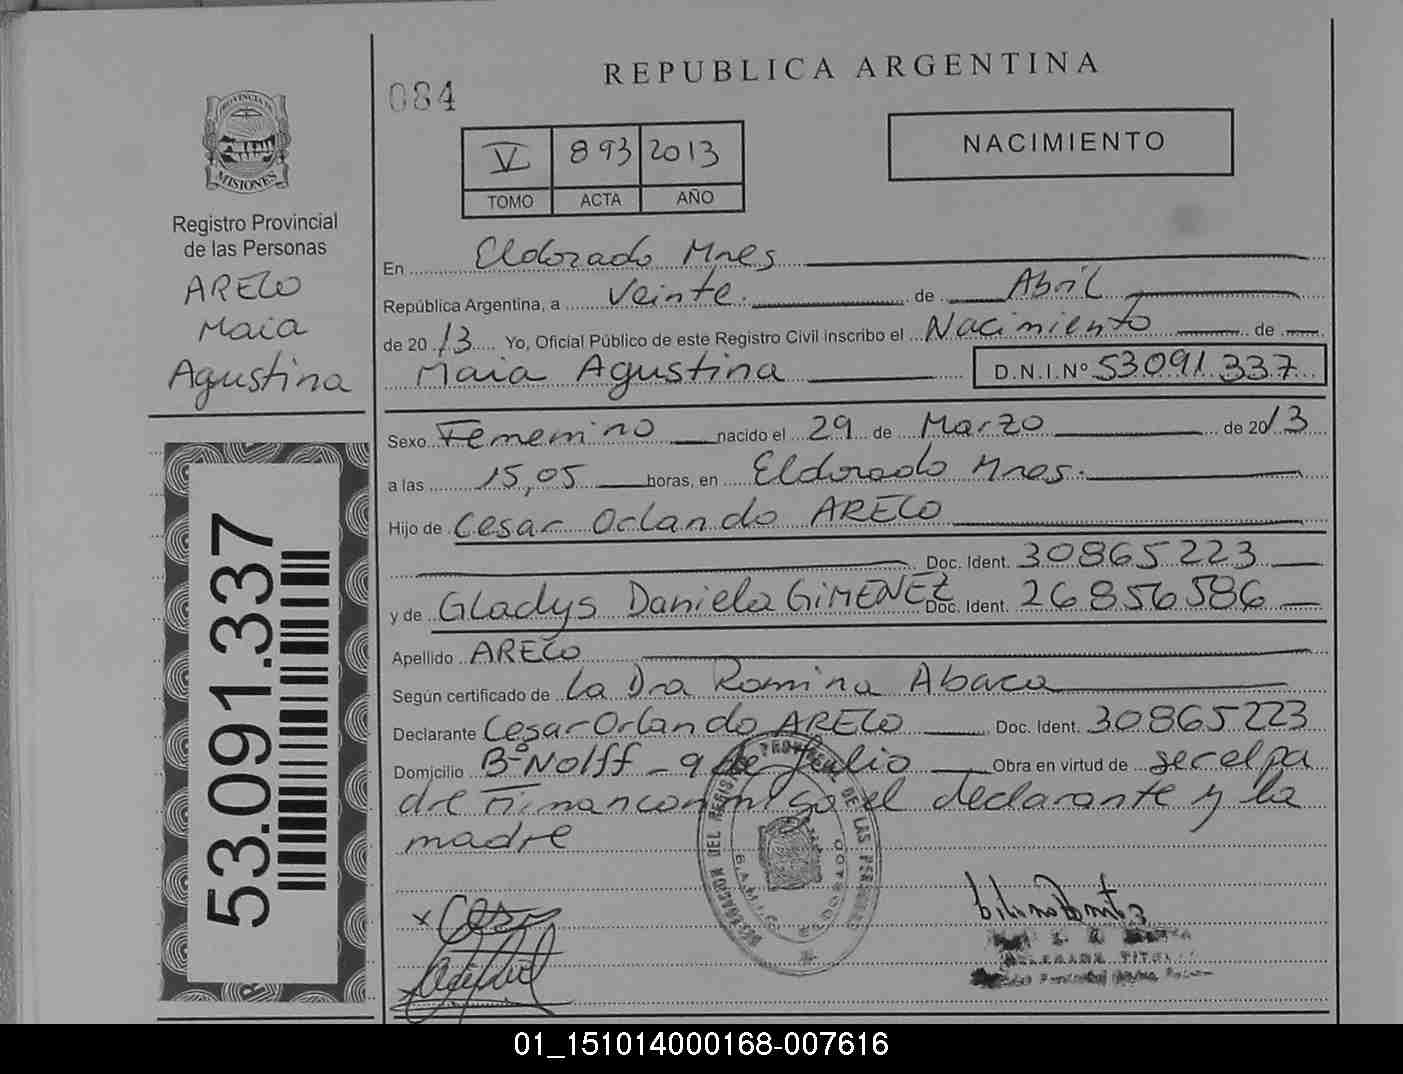 REPUBLICA ARGENTINA
084
NACIMIENTO
V 893 2013
TOMO ACTA AÑO
PROVINCIA DE
MISIONES
Registro Provincial
de las Personas
ARECO
Maia
Agustina
53.091.337
En Eldorado Mnes
República Argentina, a Veinte. de Abril
de 2013 Yo, Oficial Público de este Registro Civil inscribo el Nacimiento de
Maia Agustina D.N.I.Nº 53.091.337
Sexo Femenino nacido el 29 de Marzo de 2013
a las 15,05 horas, en Eldorado Mnes.
Hijo de Cesar Orlando ARECO
Doc. Ident. 30865223
y de Gladys Daniela GIMENEZ Doc. Ident. 26856586
Apellido ARECO
Según certificado de La Dra Romina Abaca
Declarante Cesar Orlando ARECO Doc. Ident. 30865223
Domicilio Bº Nolff - 9 de Julio Obra en virtud de ser el pa
dre Firman conmigo el declarante y la
madre
DELEGACION DEL REGISTRO PROVINCIAL DE LAS PERSONAS
ELDORADO
TITULAR
01_151014000168-007616